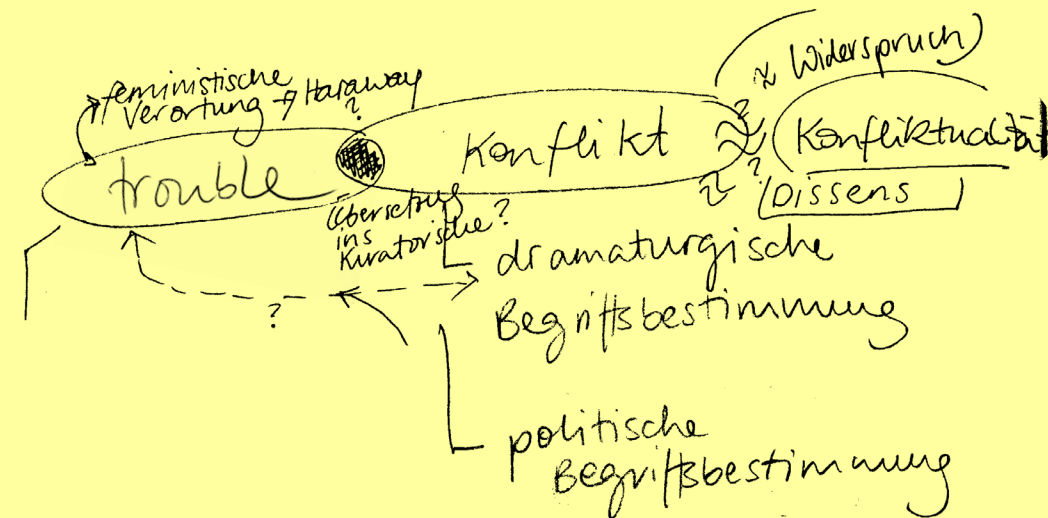 feministische
Verortung → Haraway
?
trouble
Konflikt
≈ Widerspruch)
?
≈
(Konfliktualität
≈ ?
Dissens
Übersetzung
ins
Kuratorische?
?
dramaturgische
Begriffsbestimmung
politische
Begriffsbestimmung